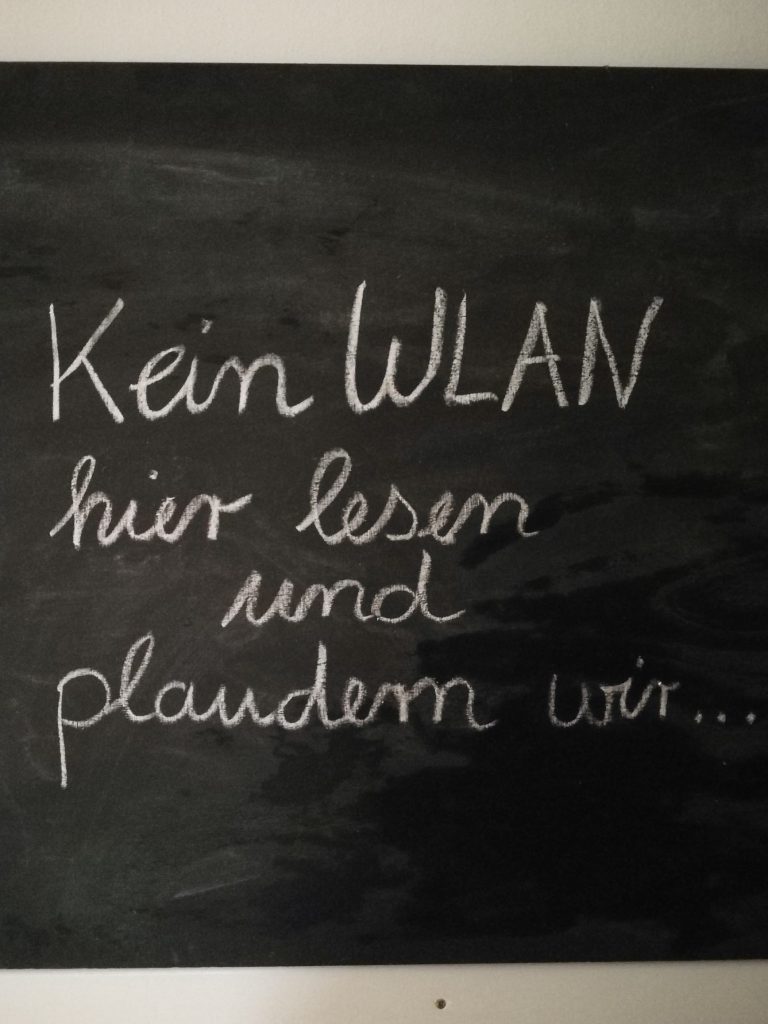 Kein WLAN
hier lesen
und
plaudern wir...